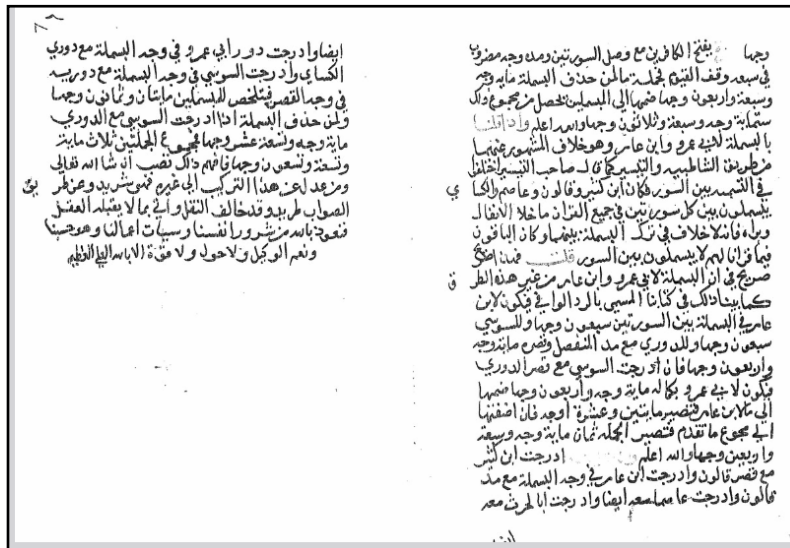 وجها يفتح الكافرين مع وصل السورتين ومد وجه مضروب
في سبعة وقف القيوم فجملة مالمن حذف البسملة مايه وجه
وسبعة واربعون وجها ضمها الي المبسملين تحصل من مجموع ذلك
ستماية وجه وسبعة وثلاثون وجها والله اعلم واذا قلنا
بالبسملة لابي عمرو وابن عامر وهو خلاف المشهور عنهما
من طريق الشاطبيه والتيسير كما قال صاحب التيسير اختلفوا
في التسمية بين السور فكان ابن كثير وقالون وعاصم والكساي
يبسملون بين كل سورتين في جميع القران ما خلا الانفال
وبراءة فانه لاخلاف في ترك البسملة بينهما وكان الباقون
فيما قرانا لهم لا يبسملون بين السور قلت فهذا اصرح
صريح في ان البسملة لابي عمرو وابن عامر من غير هذه الطرق
كما بينا ذلك في كتابنا المسمي بالرد الوافي فيكون لابن
عامر في البسملة بين السورتين سبعون وجها وللسوسي
سبعون وجها وللدوري مع مد المنفصل وقصره ماية وجه
واربعون وجها فان ادرجت السوسي مع قصر الدوري
فيكون لابي عمرو بكماله ماية وجه واربعون وجها ضمها
الي مالابن عامر فتصير مايتين وعشرة اوجه فان اضفتها
الي مجموع ما تقدم فتصير الجملة ثمان ماية وجه وسبعة
واربعين وجها والله اعلم ادرجت ابن كثير
مع قصر قالون وادرجت ابن عامر في وجه البسملة مع مد
قالون وادرجت عاصما معه ايضا وادرجت ابا الحرث معه
ايضا
ايضا وادرجت دور ابي عمرو في وجه البسملة مع دوري
الكساي وادرجت السوسي في وجه البسملة مع دوريه
في وجه القصر فيتلخص للمبسملين مايتان وثمانون وجها
ولمن حذف البسملة اذا ادرجت السوسي مع الدوري
ماية وجه وتسعة عشر وجها فمجموع الجملتين ثلاث ماية
وتسعة وتسعون وجها فافهم ذلك تصب ان شا الله تعالي
ومن عدل عن هذا التركيب الي غيره فهو شريد وعن طريق
الصواب طريد وقد خالف النقل واتي بما لا يقبله العقل
فنعوذ بالله من شرور انفسنا وسيات اعمالنا وهو حسبنا
ونعم الوكيل ولا حول ولا قوة الا بالله العلي العظيم